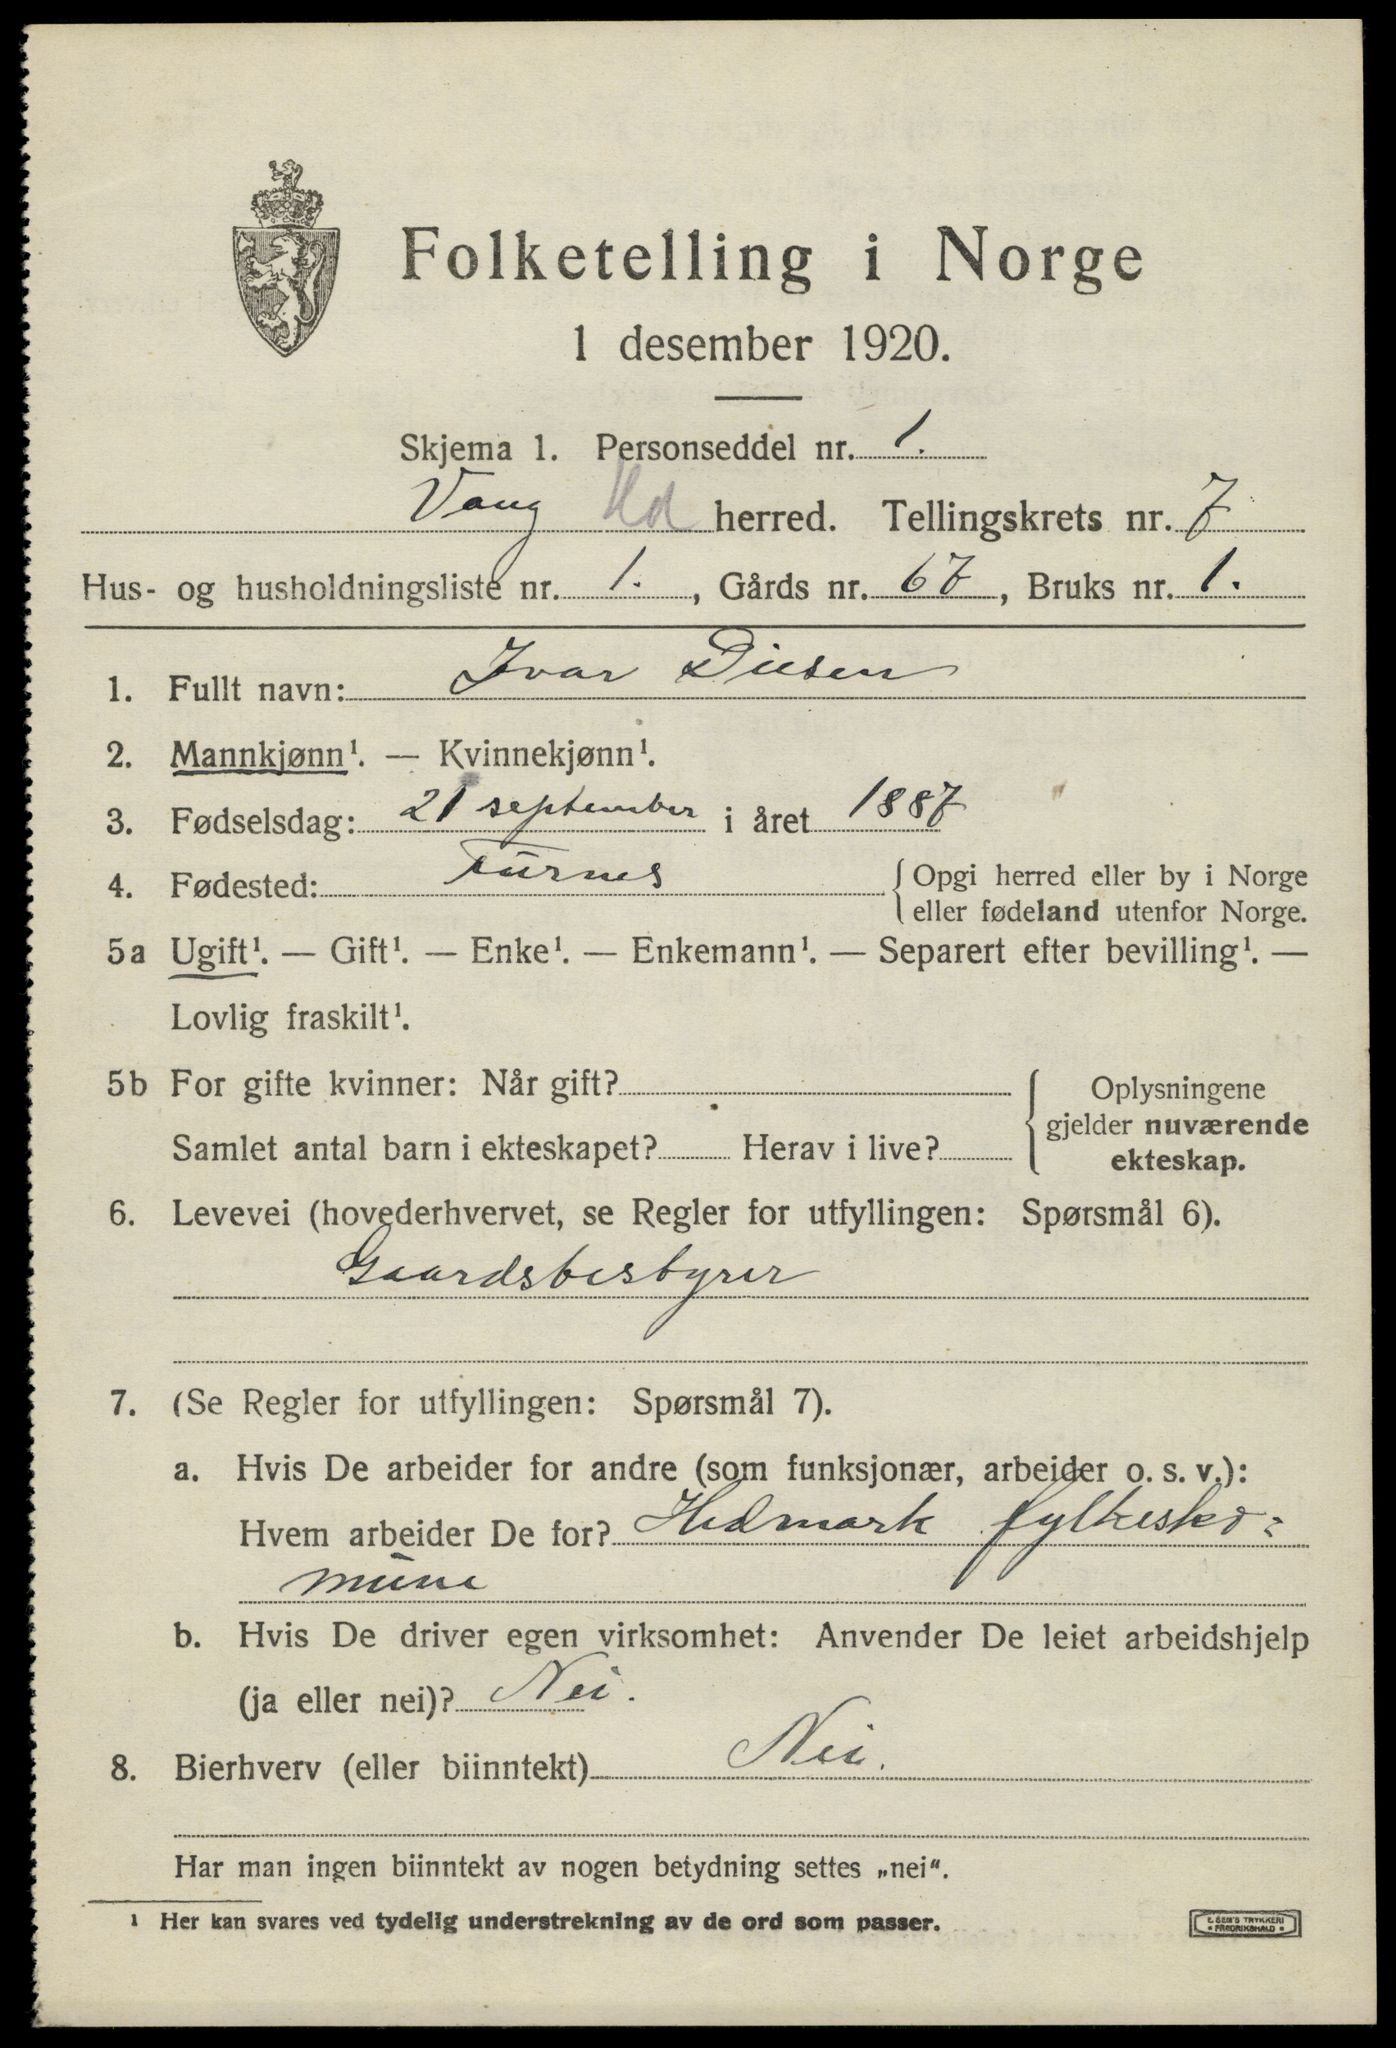 Folketelling i Norge
1 desember 1920.
Skjema 1. Personseddel nr. 1.
Vang Hd herred. Tellingskrets nr. 7
Hus- og husholdningsliste nr. 1. , Gårds nr. 67 , Bruks nr. 1.
1. Fullt navn: Ivar Diesen
2. Mannkjønn¹. — Kvinnekjønn¹.
3. Fødselsdag: 21 september i året 1887
4. Fødested: Furnes { Opgi herred eller by i Norge
eller fødeland utenfor Norge.
5a Ugift¹. — Gift¹. — Enke¹. — Enkemann¹. — Separert efter bevilling¹. —
Lovlig fraskilt¹.
5b For gifte kvinner: Når gift?
Samlet antal barn i ekteskapet? Herav i live?
{ Oplysningene
gjelder nuværende
ekteskap.
6. Levevei (hovederhvervet, se Regler for utfyllingen: Spørsmål 6).
Gaardsbestyrer
7. (Se Regler for utfyllingen: Spørsmål 7).
a. Hvis De arbeider for andre (som funksjonær, arbeider o. s. v.):
Hvem arbeider De for? Hedmark fylkesko=
mune
b. Hvis De driver egen virksomhet: Anvender De leiet arbeidshjelp
(ja eller nei)? Nei.
8. Bierhverv (eller biinntekt) Nei.
Har man ingen biinntekt av nogen betydning settes „nei“.
¹ Her kan svares ved tydelig understrekning av de ord som passer.
E. SEM'S TRYKKERI
• FREDRIKSHALD •